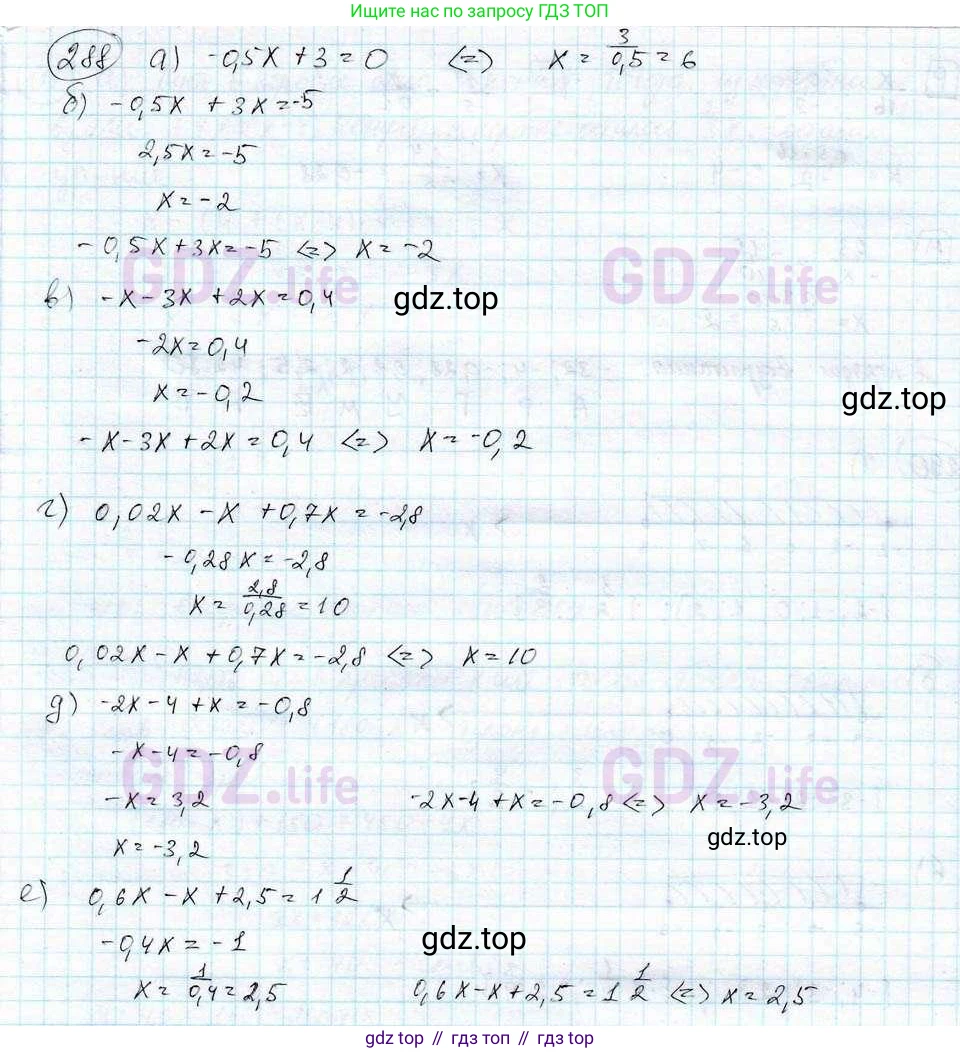 Ищите по запросу ГДЗ ТОП
288 а) -0,5x + 3 = 0 <=> x = 3/0,5 = 6
б) -0,5x + 3x = -5
2,5x = -5
x = -2
-0,5x + 3x = -5 <=> x = -2
GDZ.life GDZ.life
в) -x - 3x + 2x = 0,4
gdz.top
-2x = 0,4
x = -0,2
gdz.top
-x - 3x + 2x = 0,4 <=> x = -0,2
г) 0,02x - x + 0,7x = -2,8
-0,28x = -2,8
x = 2,8/0,28 = 10
0,02x - x + 0,7x = -2,8 <=> x = 10
д) -2x - 4 + x = -0,8
-x - 4 = -0,8
GDZ.life GDZ.life
-x = 3,2 -2x - 4 + x = -0,8 <=> x = -3,2
gdz.top
x = -3,2
е) 0,6x - x + 2,5 = 1 1/2
-0,4x = -1
gdz.top
x = 1/0,4 = 2,5 0,6x - x + 2,5 = 1 1/2 <=> x = 2,5
gdz.top // гдз.топ // гдз топ